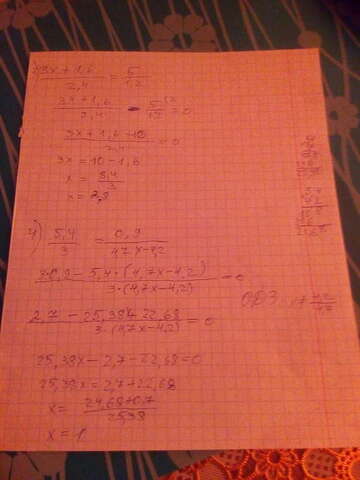 3x+1,6/2,4 = 5/1,2
3x+1,6/2,4 - 5/1,2 = 0
3x+1,6-10/2,4 = 0
3x = 10-1,6
x = 8,4/3
x = 2,8
4) 5,4/3 = 0,9/4,7x-4,2
3·0,9-5,4·(4,7x-4,2)/3·(4,7x-4,2) = 0
2,7-25,38x+22,68/3·(4,7x-4,2) = 0
ОДЗ
25,38x-2,7-22,68=0
25,38x=2,7+22,68
x=
x=1